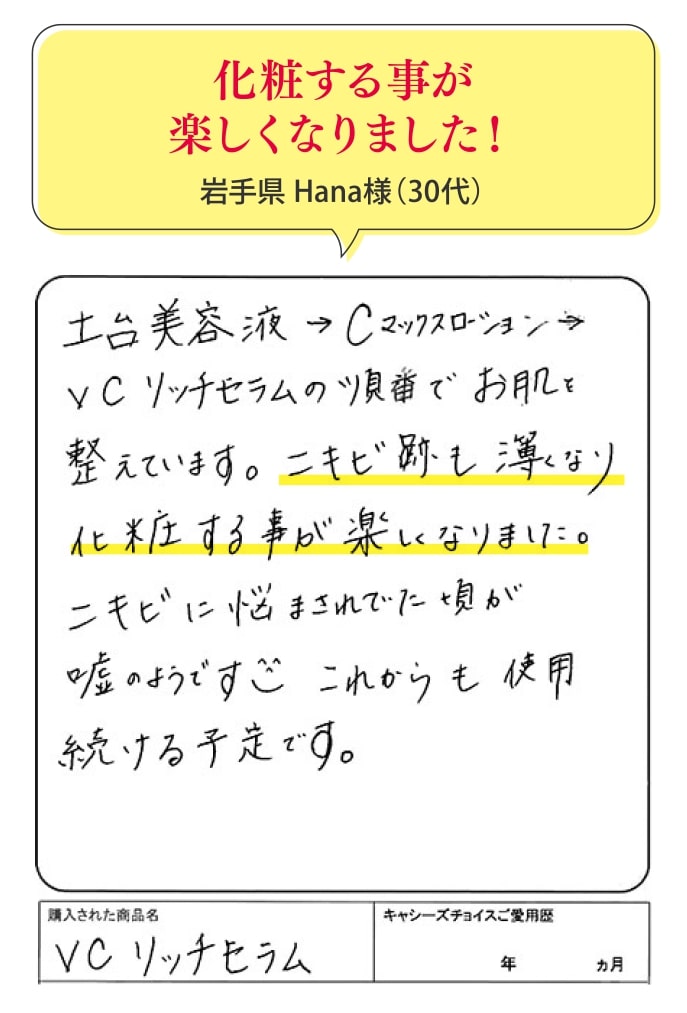 化粧する事が
楽しくなりました！
岩手県 Hana様（30代）
土台美容液→Cマックスローション→
VCリッチセラムの順番でお肌を
整えています。ニキビ跡も薄くなり
化粧する事が楽しくなりました。
ニキビに悩まされてた頃が
嘘のようです^^ これからも使用
続ける予定です。
購入された商品名
キャシーズチョイスご愛用歴
VCリッチセラム
年 ヵ月